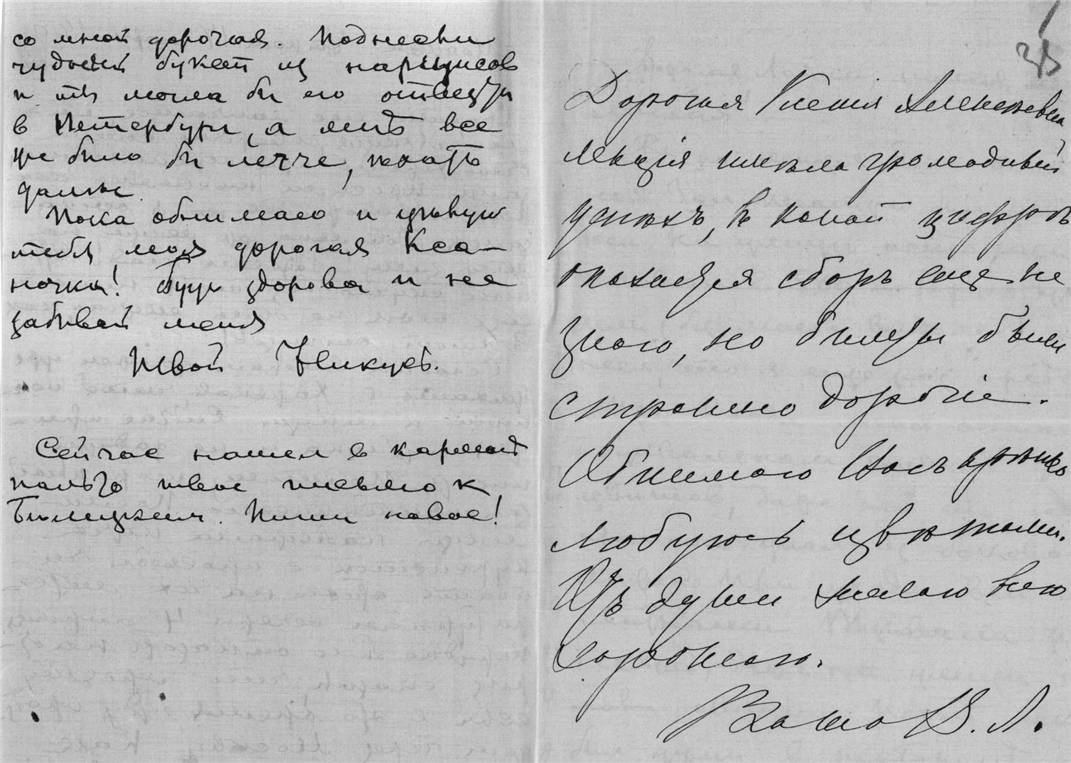 со мной дорогая. Поднесли
чудный букет из нарциссов
и ты могла бы его отвезти
в Петербург, а мнѣ все
же было бы легче, ехать
дальше
Пока обнимаю и цѣлую
тебя моя дорогая Кса-
ночка! Будь здорова и не
забывай меня
Твой
Сейчас нашел в кармане
пальто твое письмо к
Билицким. Пиши новое!
38
Дорогая Ксенія Алексѣевна
лекція имѣла громадный
успѣхъ, в какой цифрѣ
оказался сборъ еще не
знаю, но билеты были
страшно дорогіе.
Обнимаю Васъ крѣпко
любуюсь цвѣтами.
Отъ души желаю всего
хорошаго.
Ваша В. Л.